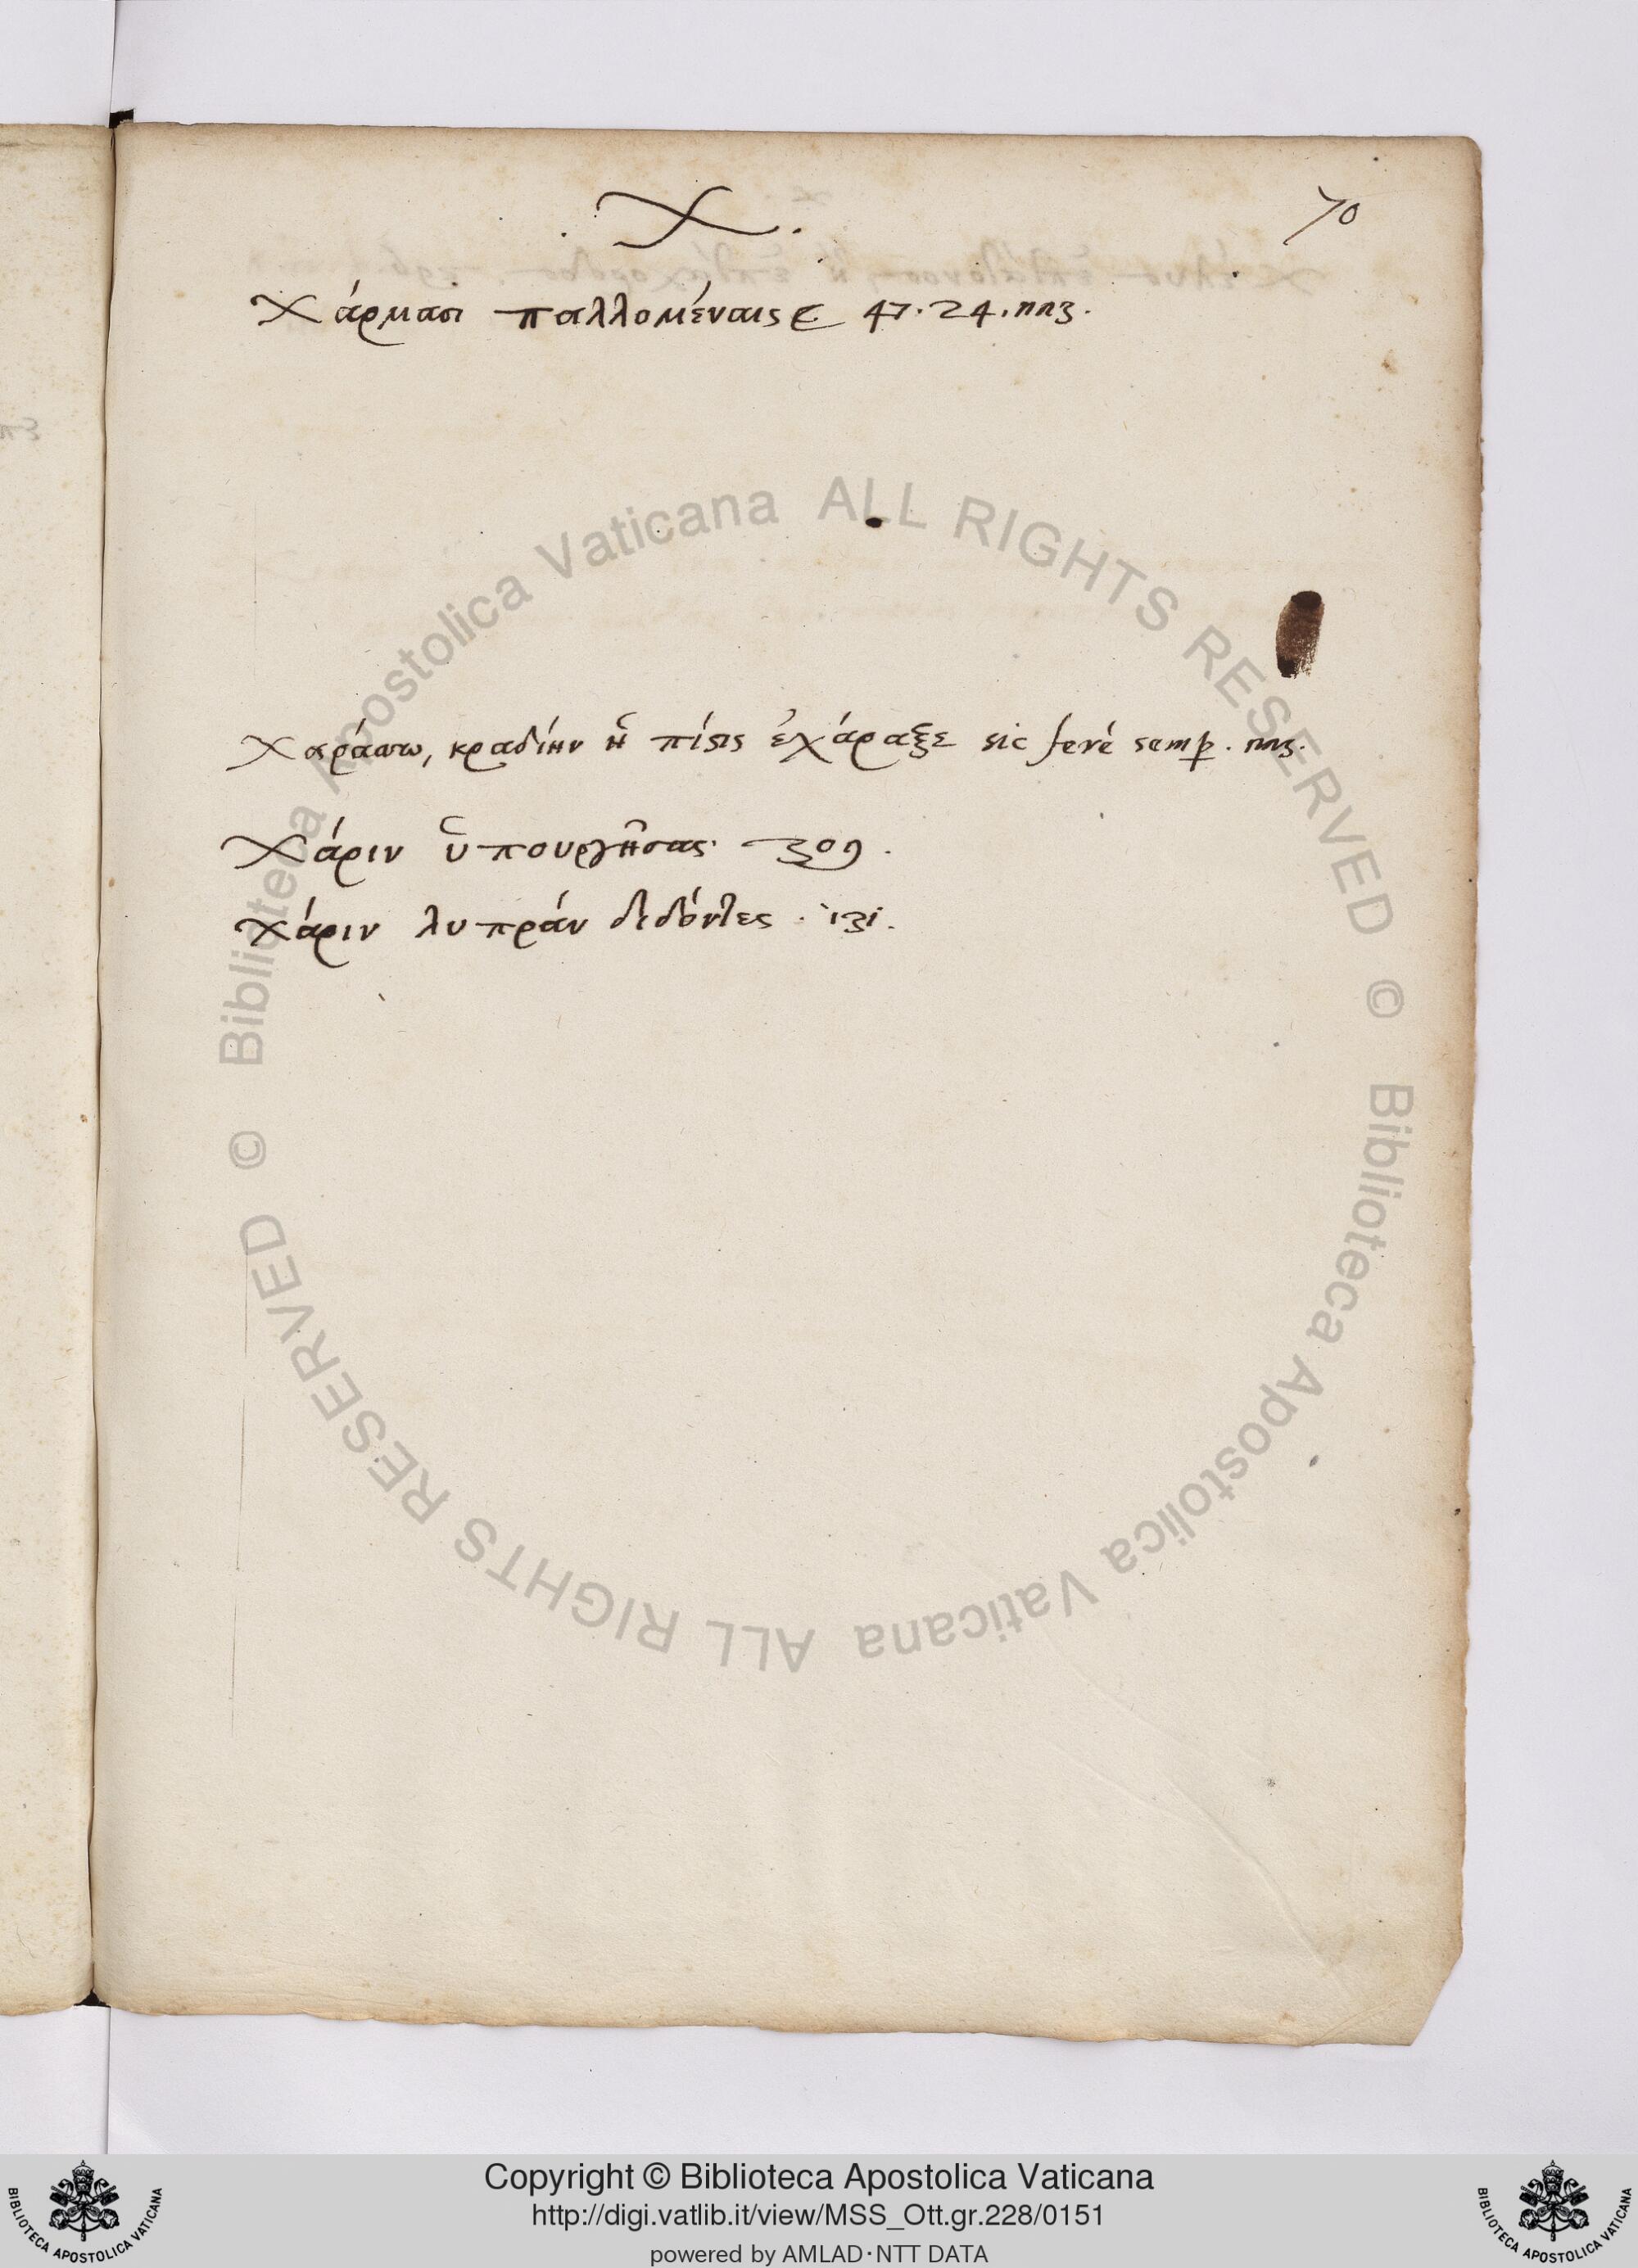 . Χ .
70
Χάρμασι παλλομέναις 47. 24. nnz.
Χαράσσω, κραδίην ἢ πίστις ἐχάραξε sic ferè semp. nnz.
Χάριν ὑπουργῆσας. 309.
Χάριν λυπρὰν διδόντες. 131.
© Biblioteca Apostolica Vaticana ALL RIGHTS RESERVED
© Biblioteca Apostolica Vaticana ALL RIGHTS RESERVED
Copyright © Biblioteca Apostolica Vaticana
http://digi.vatlib.it/view/MSS_Ott.gr.228/0151
powered by AMLAD·NTT DATA
BIBLIOTECA APOSTOLICA VATICANA
BIBLIOTECA APOSTOLICA VATICANA